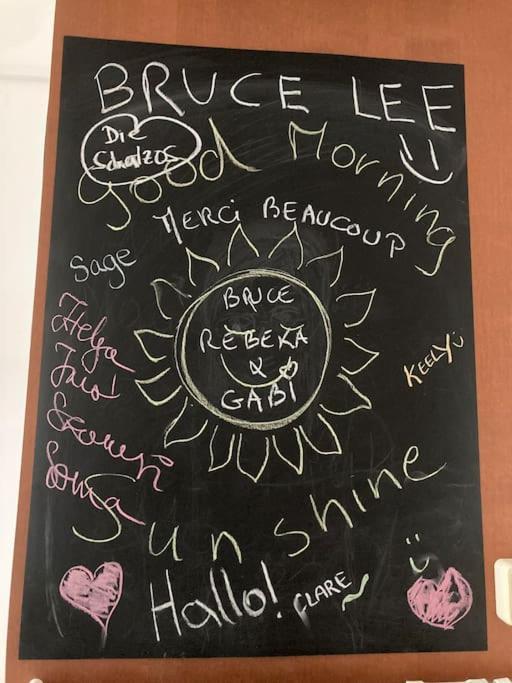 BRUCE LEE
Die
Schatzos
Good Morning
MERCi BEAUCOUP
Sage
BRUCE
REBEKA
&
GABi
Helga
KEELY
Sonja
Sunshine
Hallo!
CLARE